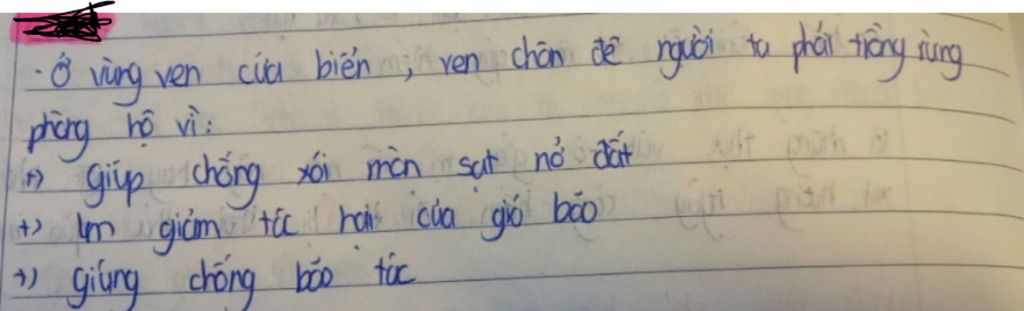 - Ở vùng ven của biển, ven chân đê người ta phải trồng rừng
phòng hộ vì:
+) giúp chống xói mòn sạt nở đất
+) lm giảm tác hại của gió bão
+) giúng chống bão túc